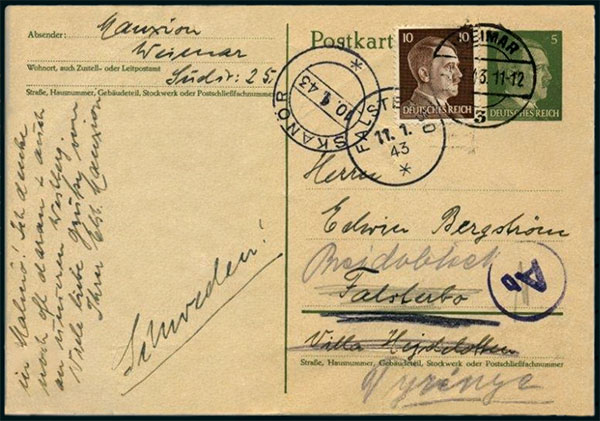 Absender: Mauxion
Weimar
Wohnort, auch Zustell- oder Leitpostamt
Südstr: 25.
Straße, Hausnummer, Gebäudeteil, Stockwerk oder Postschließfachnummer
in Malmö! Ich denke
noch oft daran + auch
an unseren
Viele liebe Grüße von
Ihrem Mauxion
Schweden!
Postkarte
10 10
DEUTSCHES REICH
5
DEUTSCHES REICH
WEIMAR
43.11-12
3
SKANÖR
10.1.43
FALSTERBO
11.1.
43
Herrn
Edwin Bergström
Falsterbo
Villa
Straße, Hausnummer, Gebäudeteil, Stockwerk oder Postschließfachnummer
Ab